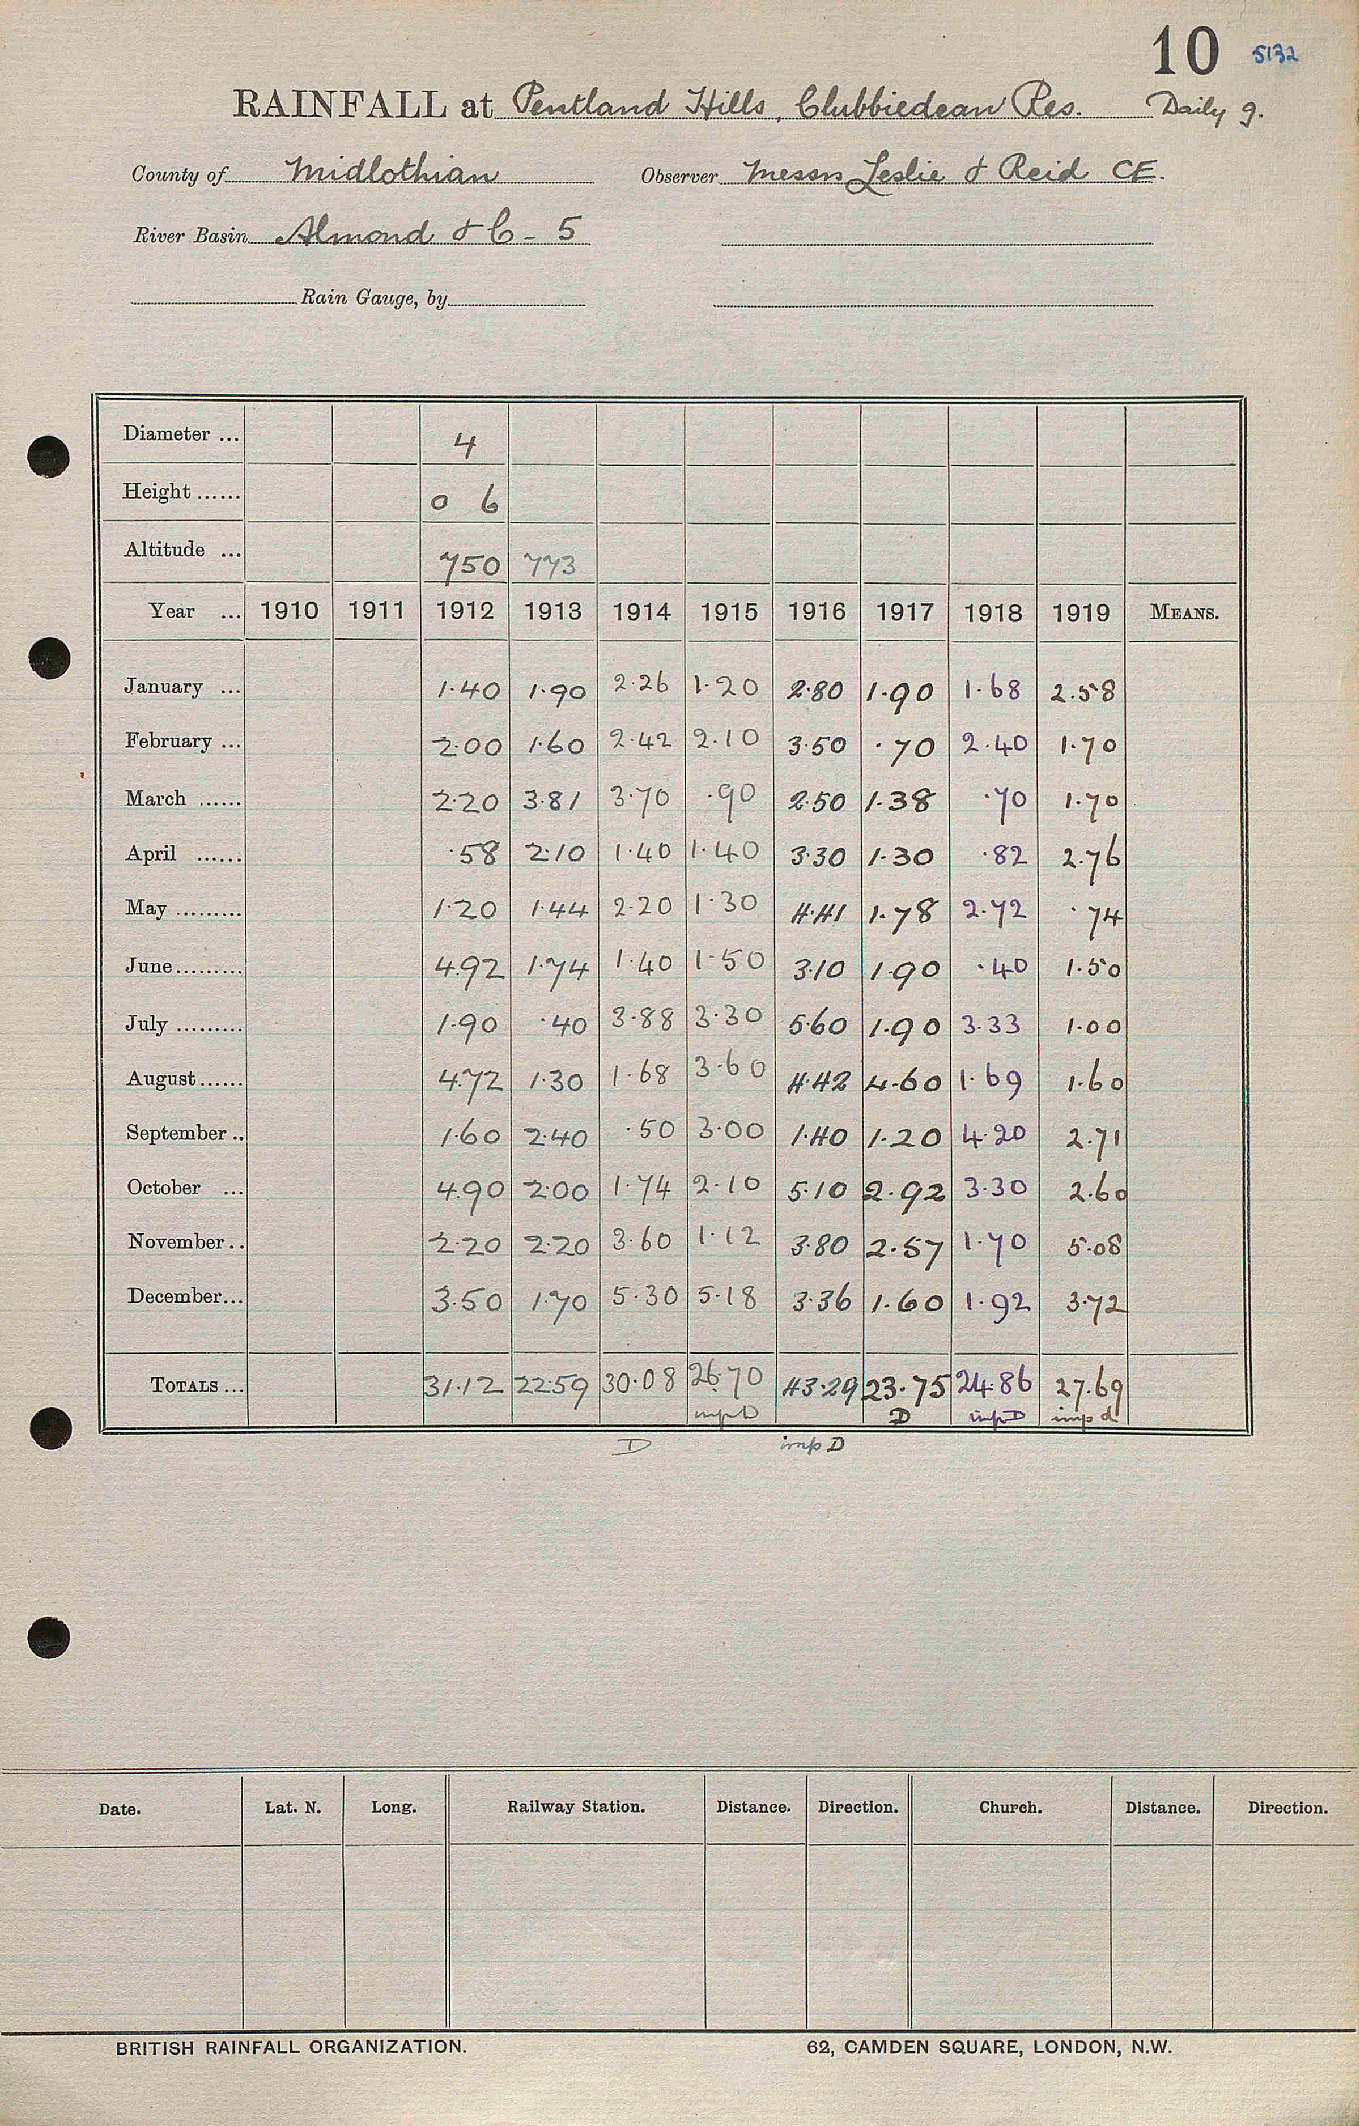 10 5132
RAINFALL at Pentland Hills, Clubbiedean Res. Daily g.
County of Midlothian Observer Messrs Leslie & Reid CE.
River Basin Almond & C - 5
Rain Gauge, by
Diameter ... 4
Height ...... 0 6
Altitude ... 750 773
Year ... 1910 1911 1912 1913 1914 1915 1916 1917 1918 1919 MEANS.
January ... 1.40 1.90 2.26 1.20 2.80 1.90 1.68 2.58
February ... 2.00 1.60 2.42 2.10 3.50 .70 2.40 1.70
March ...... 2.20 3.81 3.70 .90 2.50 1.38 .70 1.70
April ...... .58 2.10 1.40 1.40 3.30 1.30 .82 2.76
May ......... 1.20 1.44 2.20 1.30 4.41 1.78 2.72 .74
June......... 4.92 1.74 1.40 1.50 3.10 1.90 .40 1.50
July ......... 1.90 .40 3.88 3.30 5.60 1.90 3.33 1.00
August...... 4.72 1.30 1.68 3.60 4.42 4.60 1.69 1.60
September .. 1.60 2.40 .50 3.00 1.40 1.20 4.20 2.71
October ... 4.90 2.00 1.74 2.10 5.10 2.92 3.30 2.60
November .. 2.20 2.20 3.60 1.12 3.80 2.57 1.70 5.08
December... 3.50 1.70 5.30 5.18 3.36 1.60 1.92 3.72
TOTALS ... 31.12 22.59 30.08 26.70 43.29 23.75 24.86 27.69
imp D D imp D imp d
D imp D
Date. Lat. N. Long. Railway Station. Distance. Direction. Church. Distance. Direction.
BRITISH RAINFALL ORGANIZATION. 62, CAMDEN SQUARE, LONDON, N.W.